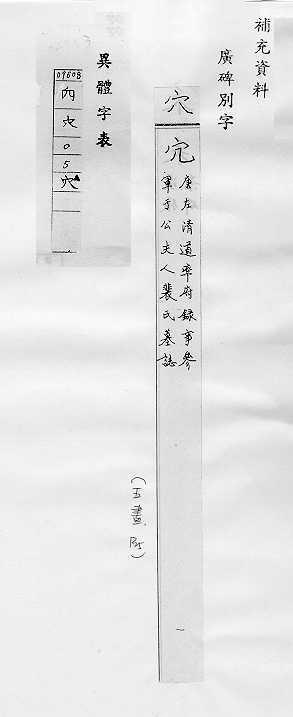 補充資料
廣碑別字
穴
宂
唐左清道率府錄事參
軍于公夫人裴氏墓誌
一
(五畫
異體字表
09608
內
穴
0
5
穴